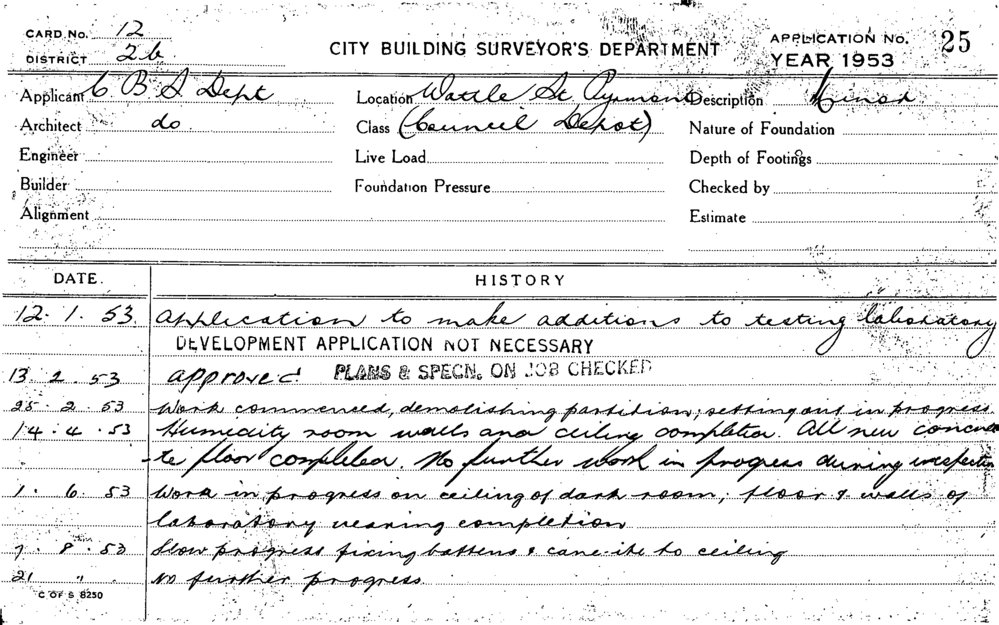 CARD No. 12
DISTRICT 26
CITY BUILDING SURVEYOR'S DEPARTMENT
APPLICATION No. 25
YEAR 1953
Applicant C B S Dept
Location Wattle St Pyrmont
Description Minor
Architect do.
Class (Council Depot)
Nature of Foundation
Engineer
Live Load
Depth of Footings
Builder
Foundation Pressure
Checked by
Alignment
Estimate
DATE.
HISTORY
12. 1. 53. Application to make additions to testing laboratory
DEVELOPMENT APPLICATION NOT NECESSARY
13. 2. 53 approved. PLANS & SPECN. ON JOB CHECKED
25. 2. 53 Work commenced, demolishing partition; setting out in progress.
14. 4. 53 Humidity room walls and ceiling completed. All new concre
-te floor completed. No further work in progress during inspection
1. 6. 53 Work in progress on ceiling of dark room; floor & walls of
laboratory nearing completion
7. 8. 53 Slow progress fixing battens & cane-ite to ceiling
21 " . No further progress.
C OF S 8250